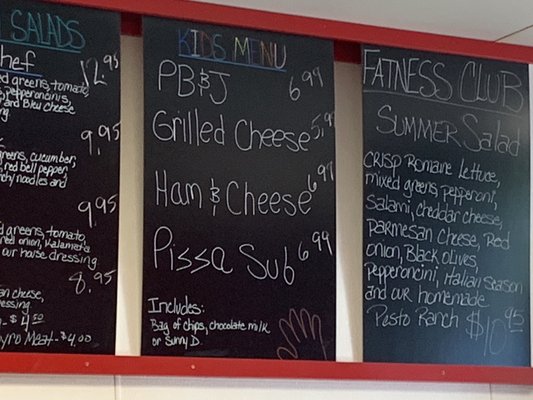 SALADS
Chef 12.95
greens, tomato,
pepperoncinis,
and Bleu Cheese
9.95
greens, cucumber,
red bell pepper,
noodles and
9.95
greens, tomato,
red onion, Kalamata
our house dressing
8.95
cheese,
$4.50
Gyro Meat - $4.00
KIDS MENU
PB&J 6.99
Grilled Cheese 5.99
Ham & Cheese 6.99
Pissa Sub 6.99
Includes:
Bag of chips, chocolate milk
or Sunny D.
FATNESS CLUB
SUMMER Salad
CRISP Romaine lettuce,
mixed greens, pepperoni,
Salami, cheddar cheese,
Parmesan cheese, Red
onion, Black olives,
Pepperoncini, Italian Season
and our homemade
Pesto Ranch $10.95